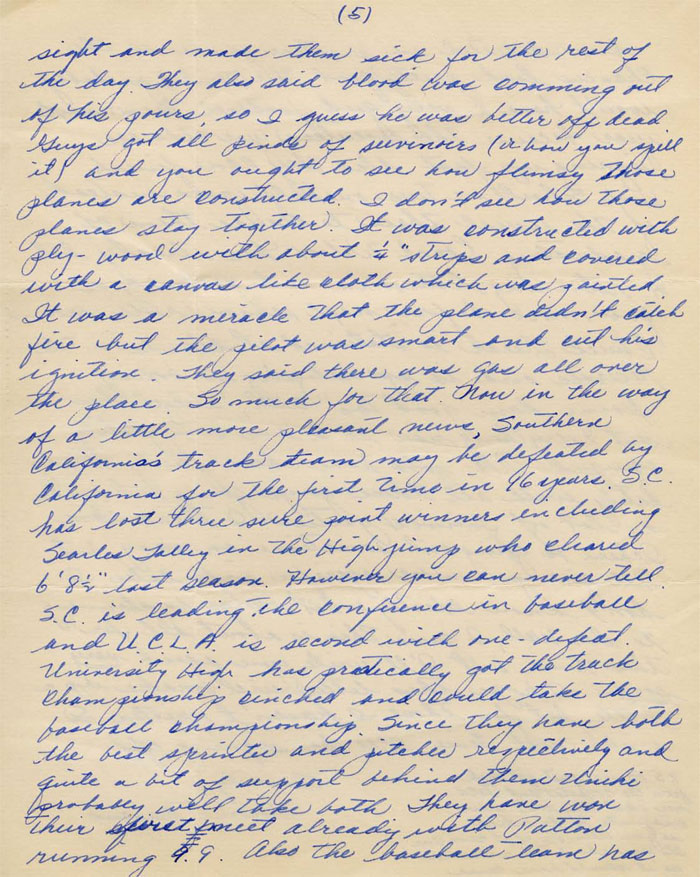 (5)
sight and made them sick for the rest of
the day. They also said blood was comming out
of his pours, so I guess he was better off dead
Guys got all kinds of suvinoirs (or how you spell
it) and you ought to see how flimsy those
planes are constructed. I don't see how those
planes stay together. It was constructed with
ply-wood with about ¼" strips and covered
with a canvas like cloth which was painted
It was a miracle that the plane didn't catch
fire but the pilot was smart and cut his
ignition. They said there was gas all over
the place. So much for that. Now in the way
of a little more pleasant news, Southern
California's track team may be defeated by
California for the first time in 16 years. S.C.
has lost three sure point winners encluding
Searles Talley in the High-jump who cleared
6' 8½" last season. However you can never tell.
S.C. is leading the conference in baseball
and U.C.L.A. is second with one-defeat.
University High has pratically got the track
championship cinched and could take the
baseball championship. Since they have both
the best sprinter and pitcher respectively and
quite a bit of support behind them Unihi
probably will take both. They have won
their first meet already with Patton
running 9.9. Also the baseball team has